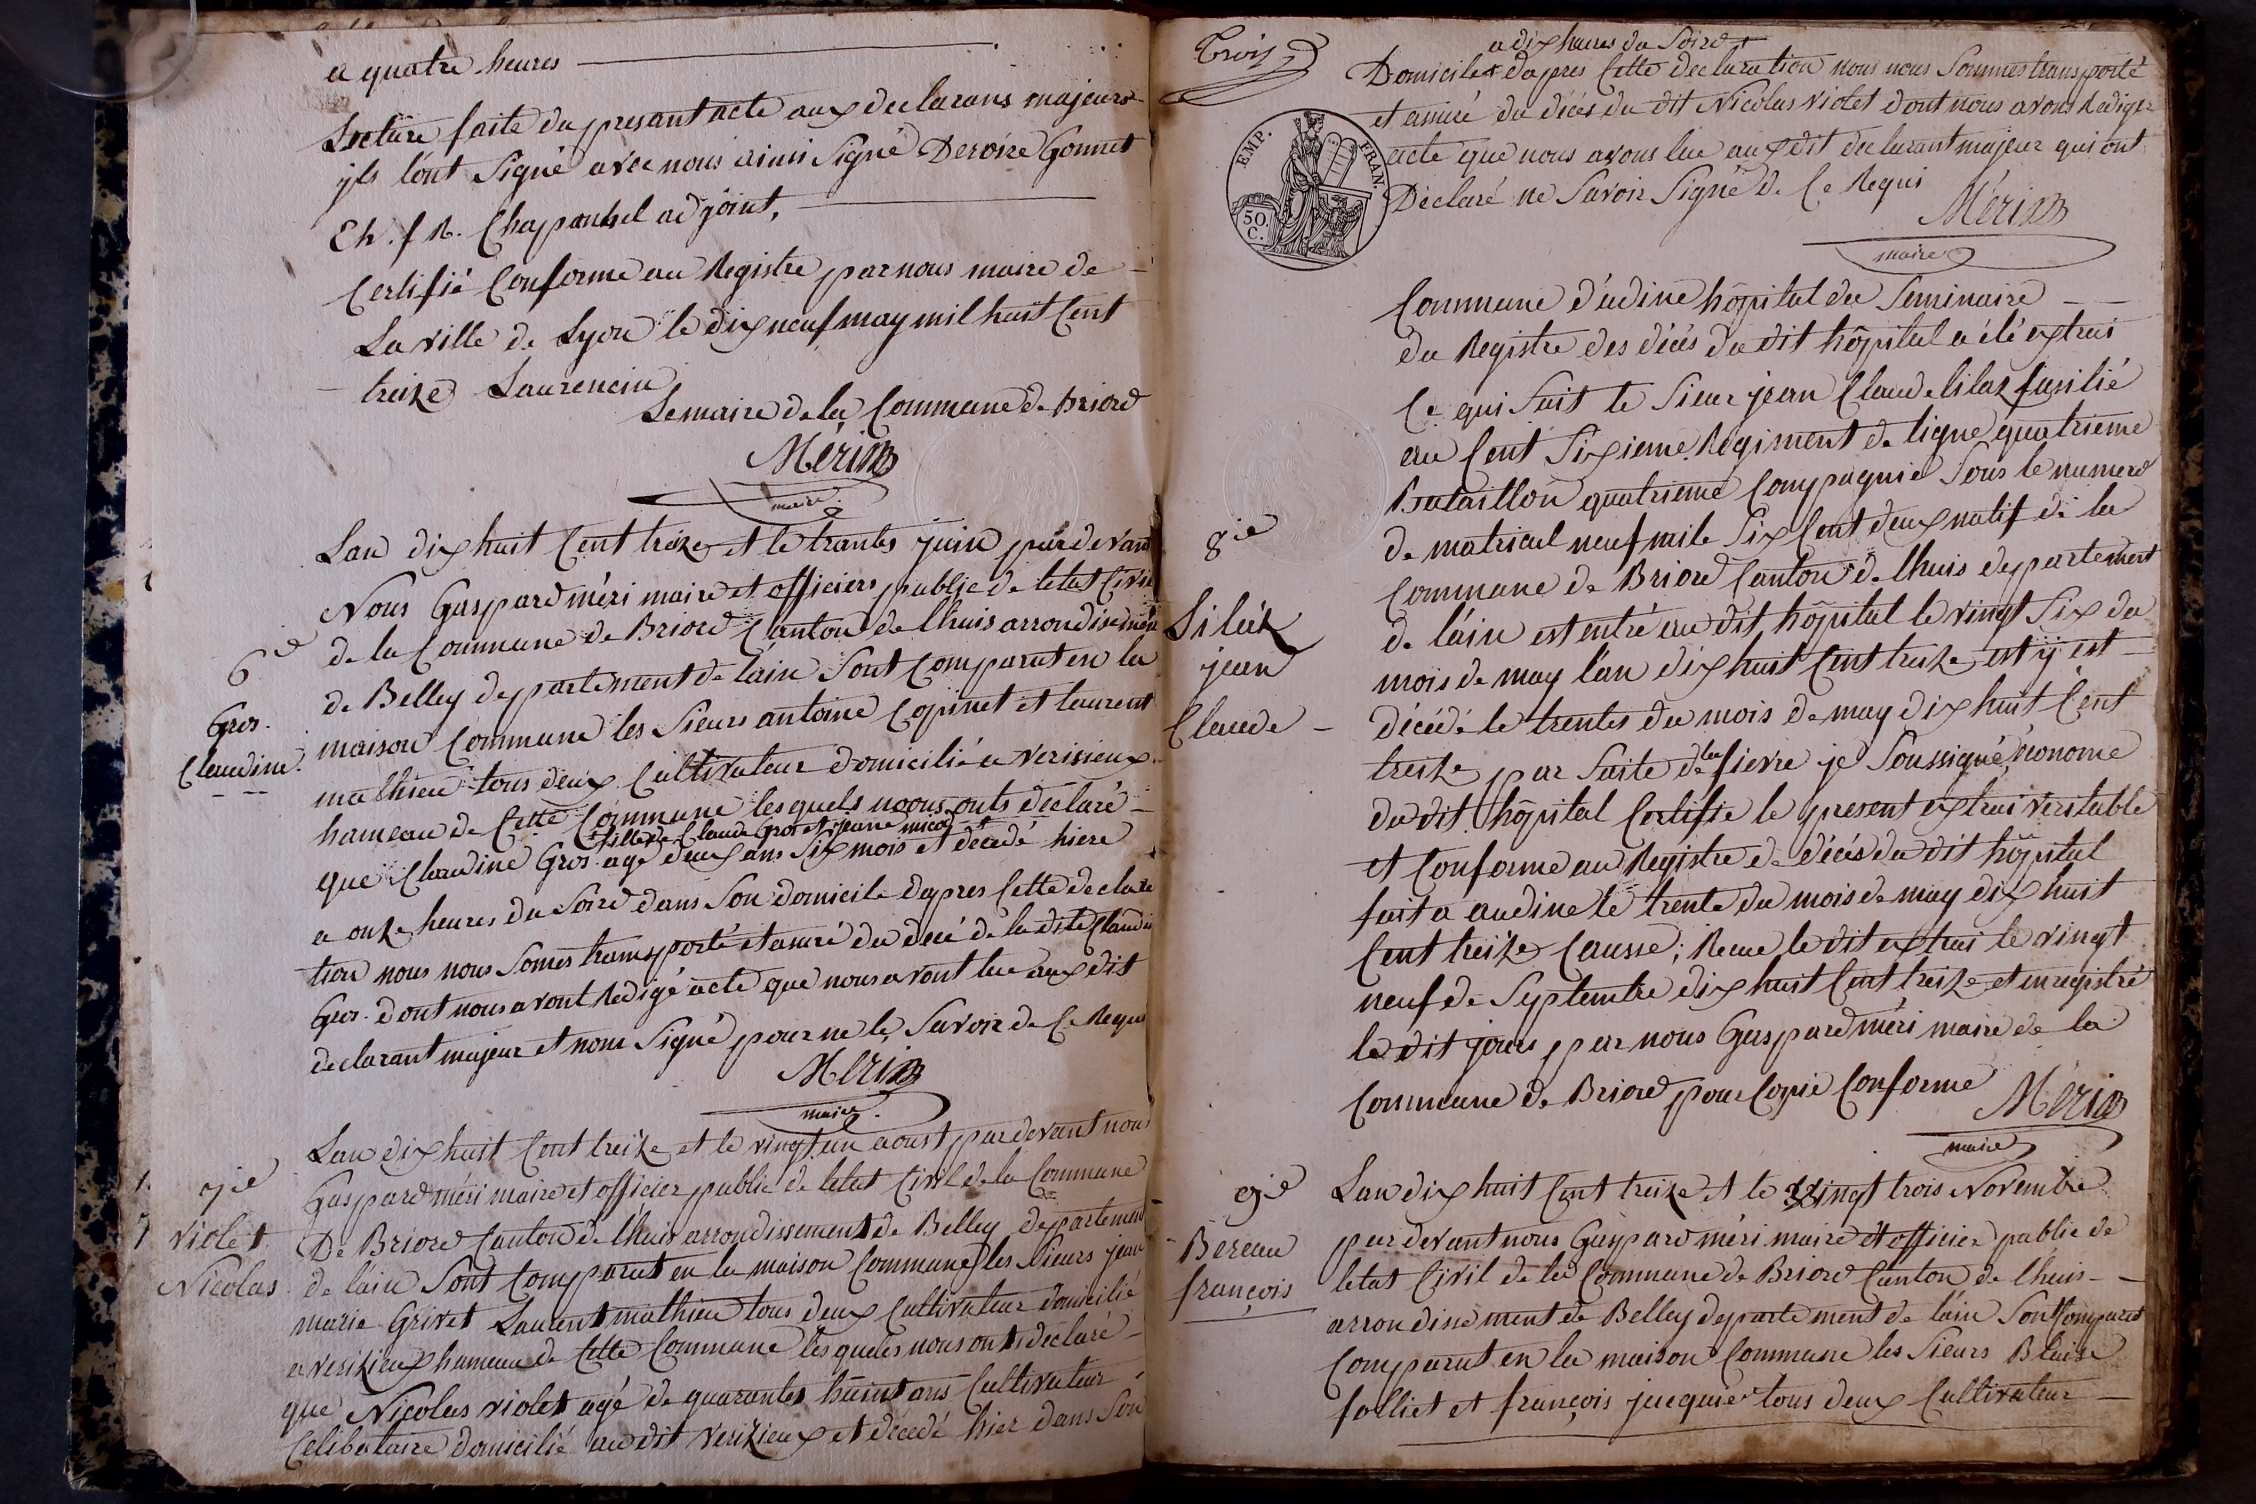 a quatre heures
Lecture faite du presant acte aux declarans majeurs
yls l'ont Signé avec nous ainsi Signé Deroire Gonnet
Eh. f R. Chaponhel adjoint.
Certifié Conforme au Registre par nous maire de
La ville de Lyon le dix neuf may mil huit Cent
treize Laurencin
Le maire de la Commune de Briord
Méri
maire
6e
Gros
Claudine
Lan dix huit Cent treize et le trantes juin par devant
Nous Gaspard méri maire et officiers public de letat Civil
de la Commune de Briord Canton de lhuis arrondisement
de Belley departement de l'ain Sont Comparut en la
maison Commune les Sieurs antoine Copinet et laurent
mathieu tous deux Cultivateur domicilié a verisieux
hameau de Cette Commune lesquels noous onts déclaré
fille de Claude Gros et jeane
que Claudine Gros agé deux ans Six mois et décédé hiere
a onze heures du Soire dans Son domicile dapres Cette declara
tion nous nous Somes transporté et asuré du décé de la dite Claudine
Gros dont nous avont Redigé acte que nous avont lue aux dit
declarant majeur et nom Signé pour ne le Savoir de Ce Requi
Méri
maire
7ie
violet
Nicolas
Lan dix huit Cent treize et le vingt un aoust par devant nous
Gaspard méri maire et officier public de letat Civil de la Commune
De Briord Canton de lhuis arrondissement de Belley departement
de l'ain Sont Comparut en la maison Commune les Sieurs jean
marie Grivet Laurent mathieu tous deux Cultivateur domicilié
a verizieux hameau de Cette Commune les queles nous onts déclaré
que Nicolas violet agé de quarantes huint ans Cultivateur
Celibataire domicilié audit verizieux et décédé hier dans Son
Trois
a dix heures du Soire
Domicile dapres Cette declaration nous nous Sommes transporté
et asuré du décés du dit Nicolas violet dont nous avons Rediger
acte que nous avons lue aux dit declarant majeur qui ont
Déclaré ne Savoir Signé de Ce Requi
Méri
maire
EMP. FRAN.
50. C.
8ie
Silaz
jean
Claude
Commune d'udine hôpital du Seminaire
du Registre des décés dudit hôpital a été extrai
Ce qui Suit le Sieur jean Claude lilaz fusilié
au Cent Sixieme Régiment de ligne quatrieme
Bataillon quatrieme Compagnie Sous le numero
de matricul neuf mile Six Cent deux natif de la
Commune de Briord Canton de lhuis departement
de l'ain est entré au dit hôpital le vingt Six du
mois de may l'an dix huit Cent treize est ÿ est
décédé le trentes du mois de may dix huit Cent
treize par Suite de la fievre je Soussigné, économe
du dit hôpital Certifie le present extrai veritable
et Conforme au Registre de décés du dit hôpital
fait a audine le trente du mois de may dix huit
Cent treize Causse; Recue le dit extrai le vingt
neuf de Septembre dix huit Cent treize et enregistré
le dit jours par nous Gaspard méri maire de la
Commune de Briord pour Copie Conforme
Méri
maire
9ie
Bereau
françois
Lan dix huit Cent treize et le vingt trois Novembre
par devant nous Gaspard méri maire et officier public de
letat Civil de la Commune de Briord Canton de lhuis
arrondissement de Belley departement de l'ain Sont Comparut
Comparut en la maison Commune les Sieurs Blaise
folliet et françois juquié tous deux Cultivateur